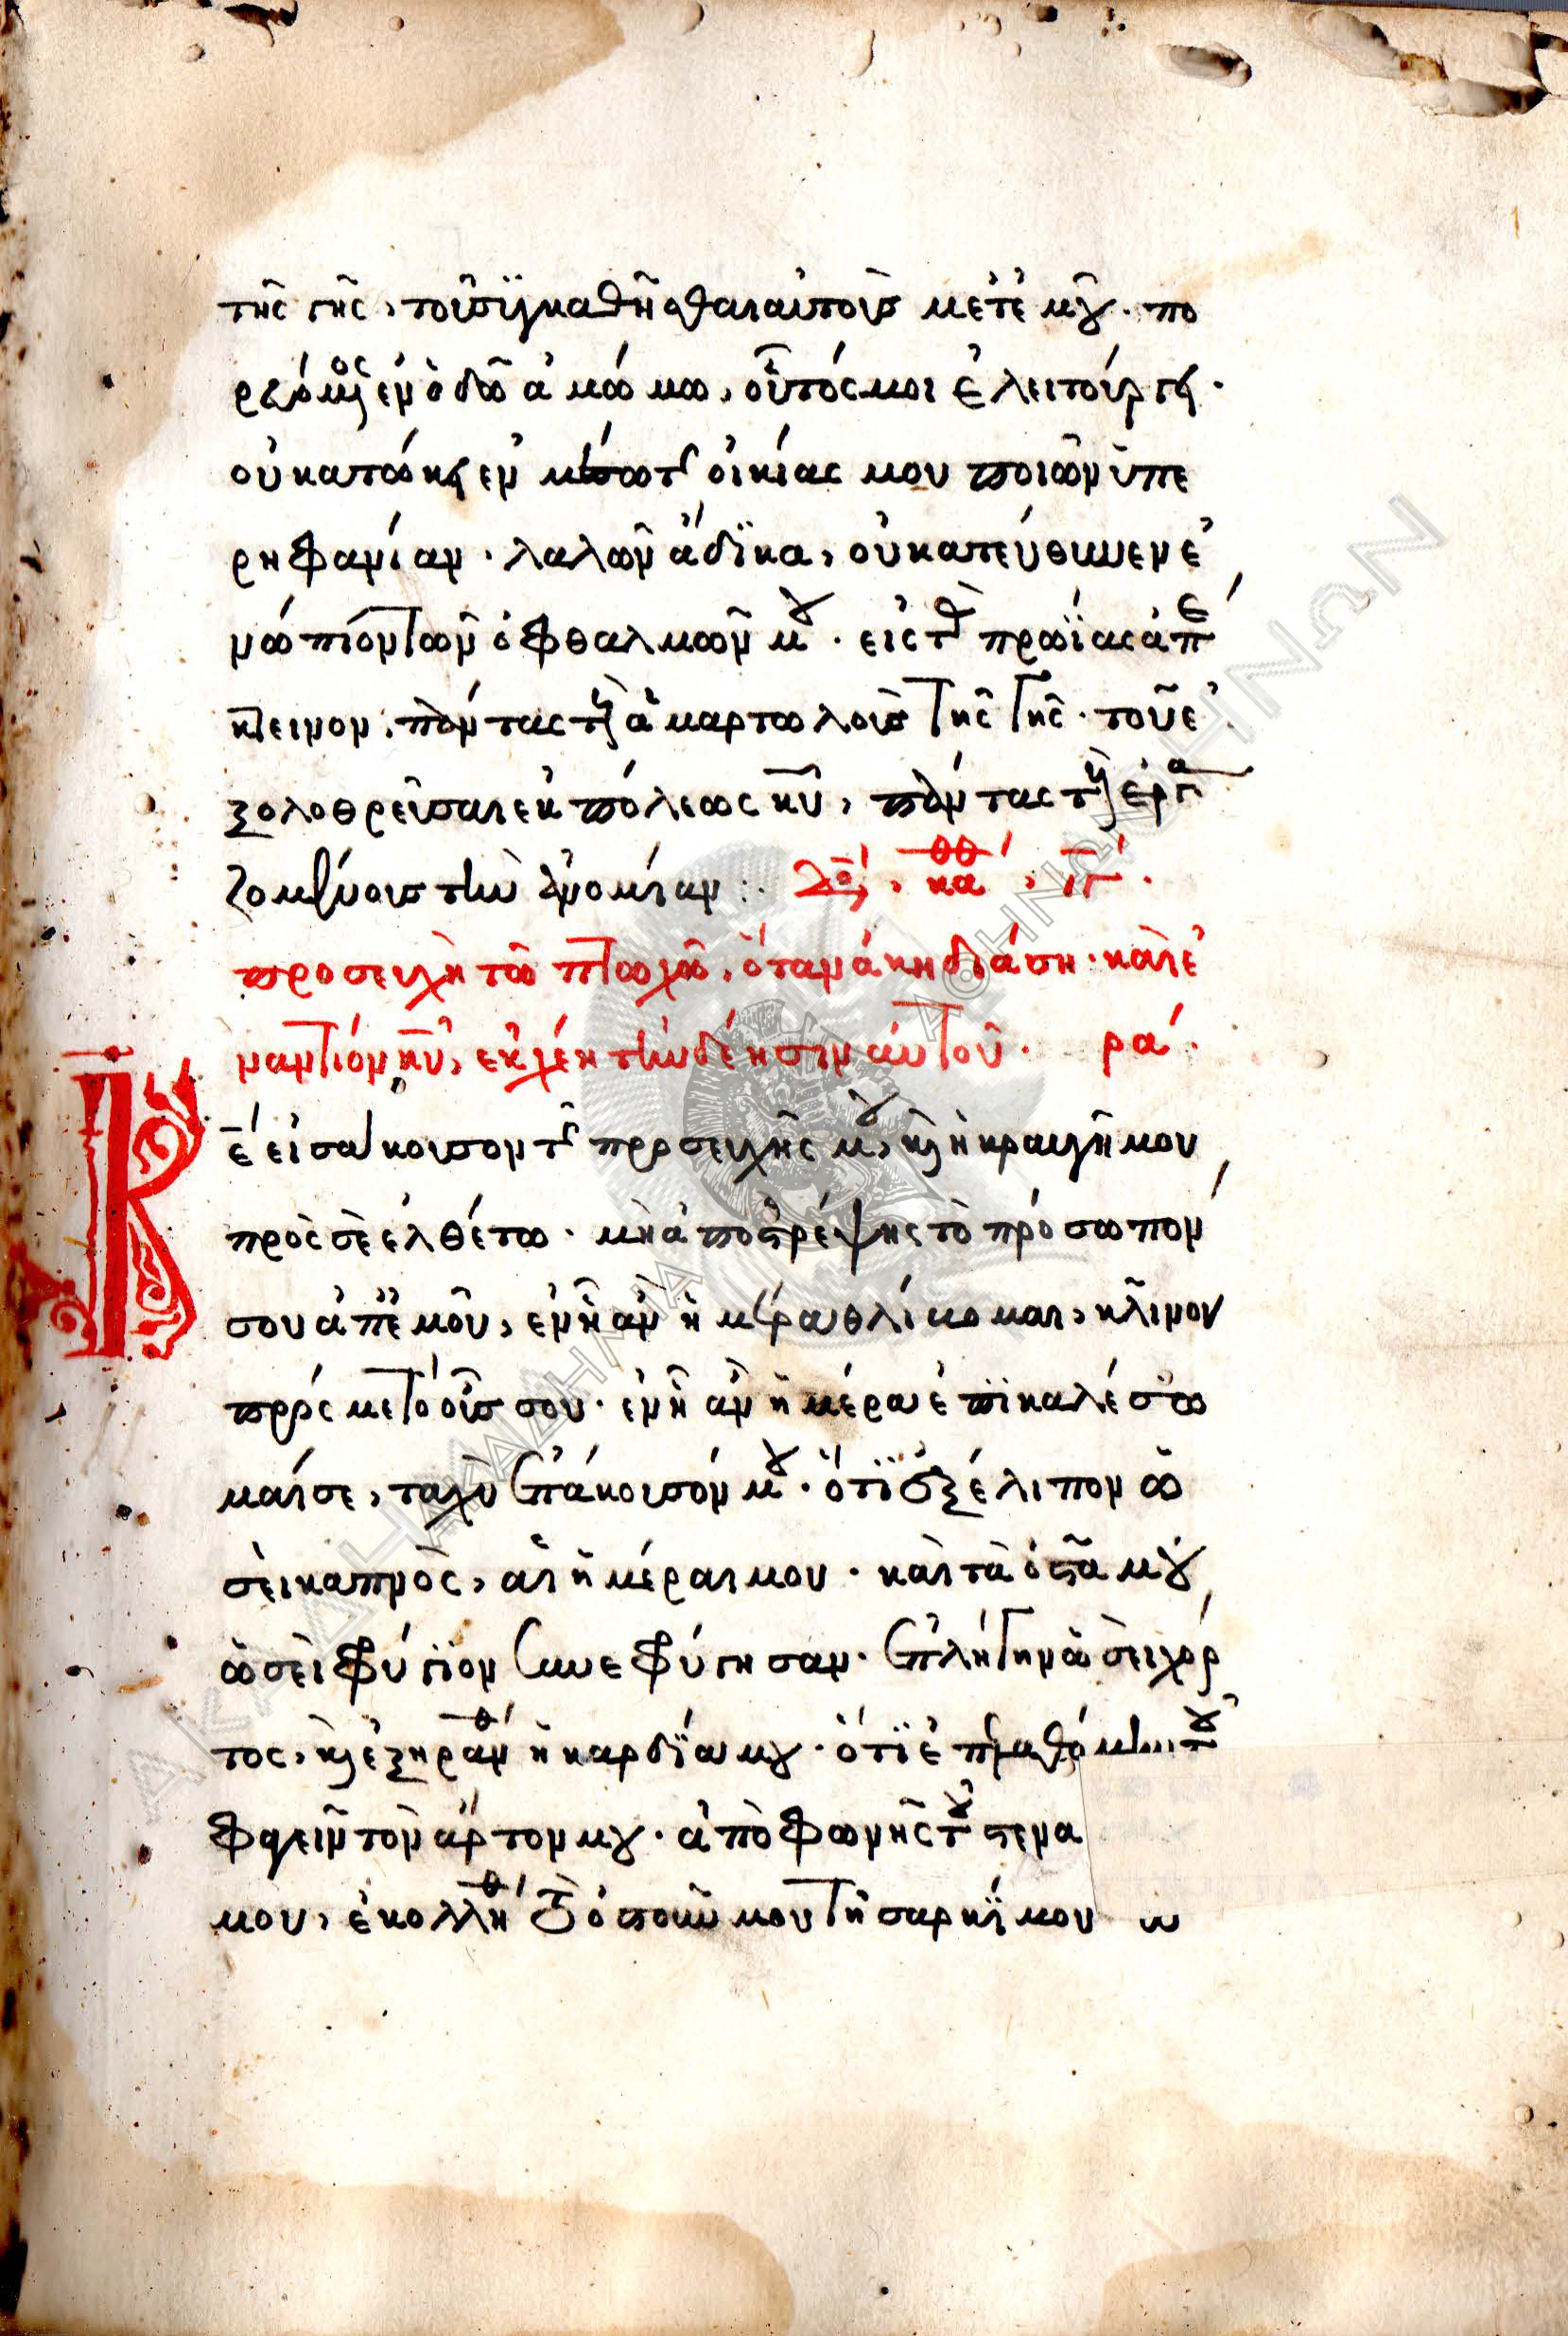 τῆς γῆς, τοῦ συγκαθῆσθαι αὐτοὺς μετ' ἐμοῦ. πο
ρευόμενος ἐν ὁδῷ ἀμώμω, οὗτός μοι ἐλειτούργει.
οὐ κατώκει ἐν μέσω τῆς οἰκίας μου ποιῶν ὑπε
ρηφανίαν. λαλῶν ἄδικα, οὐ κατεύθυνεν ἐ
νώπιον τῶν ὀφθαλμῶν μου. εἰς τὰς πρωΐας ἀπέ
κτεινον, πάντας τοὺς ἁμαρτωλοὺς τῆς γῆς. τοῦ ἐ
ξολοθρεῦσαι ἐκ πόλεως κυ, πάντας τοὺς ἐργα
ζομένους τὴν ἀνομίαν:. Δόξα, καθ,
προσευχὴ τῶ πτωχῶ, ὅταν ἀκηδιάση. καὶ ἐ
ναντίον κυ, ἐκχέη τὴν δέησιν αὐτοῦ. ρα.
Κε εἰσάκουσον τῆς προσευχῆς μου, καὶ ἡ κραυγή μου
πρὸς σὲ ἐλθέτω. μὴ ἀποστρέψης τὸ πρόσωπόν
σου ἀπ' ἐμοῦ, ἐν ᾗ ἂν ἡμέρα θλίβομαι, κλῖνον
πρός με τὸ οὖς σου. ἐν ᾗ ἂν ἡμέρα ἐπικαλέσω
μαί σε, ταχὺ ἐπάκουσόν μου. ὅτι ἐξέλιπον ὡ
σεὶ καπνὸς, αἱ ἡμέραι μου. καὶ τὰ ὀστᾶ μου
ὡσεὶ φρύγιον συνεφρύγησαν. ἐπλήγην ὡσεὶ χόρ
τος, καὶ ἐξηράνθη ἡ καρδία μου. ὅτι ἐπελαθόμην τοῦ
φαγεῖν τὸν ἄρτον μου. ἀπὸ φωνῆς τοῦ στενα
μου, ἐκολλήθη τὸ ὀστοῦν μου τῆ σαρκί μου ω